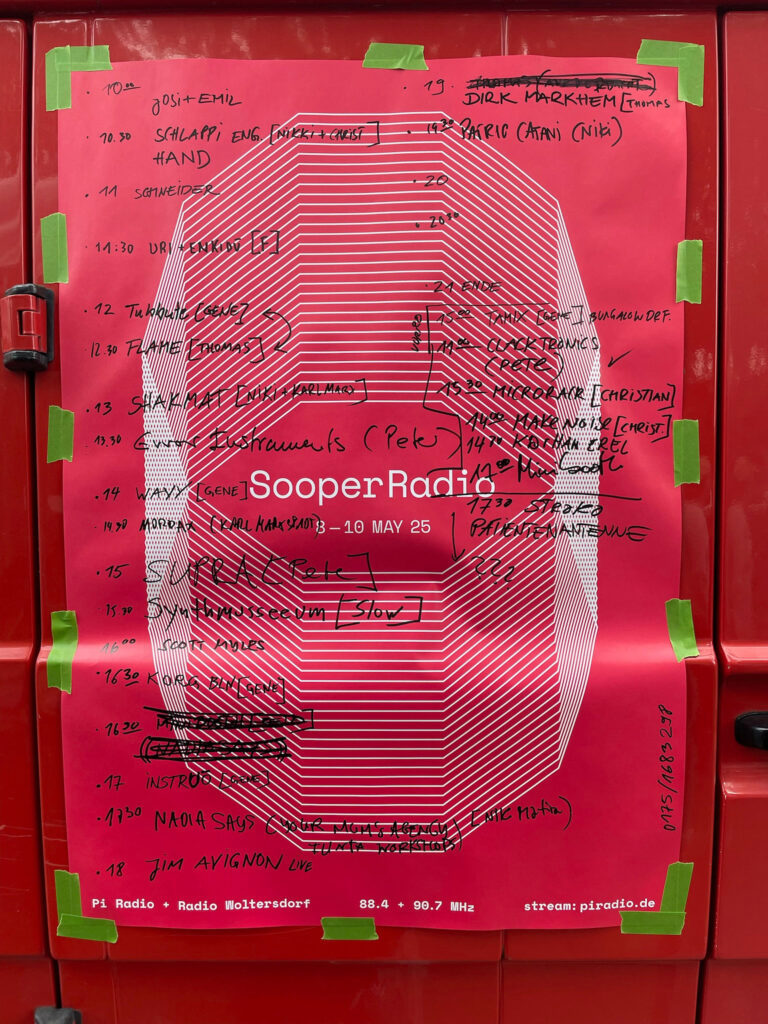 10 00
JOSI + EMIL
10.30 SCHLAPPI ENG. [NIKKI + CHRIST]
HAND
11 SCHNEIDER
11:30 URI + ENKIDU [F]
12 [GENE]
12.30 FLAME [THOMAS]
13 SHAKMAT [NIKI + KARLMARX]
13.30 Instruments (Peter)
14 WAVY [GENE]
14.30 MORDAX (KARL MARXSTADT)
15 SUPRA (Pete]
15.30 Synthmusseeum [Slow]
16 00 SCOTT MYLES
16 30 KORG BLN [GENE]
16 30
17 INSTRUO [GENE]
17 30 NADIA SAYS (YOUR MUM'S AGENCY) [NIK Mafia)
WORKSHOPS
18 JIM AVIGNON LIVE
19.
DIRK MARKHEM [THOMAS
19 30 (Niki)
20
20 30
21 ENDE
15 00 TAMIX [GENE] BUNGALOWDRF.
11 00 CLACKTRONICS
(PETE)
15 30 MICRORACK [CHRISTIAN]
14 00 MAKE NOISE [CHRIST]
14 30
17 00
17 30
PATIENTENANTENNE
???
SooperRadio
8–10 MAY 25
0175/1683298
Pi Radio + Radio Woltersdorf
88.4 + 90.7 MHz
stream: piradio.de